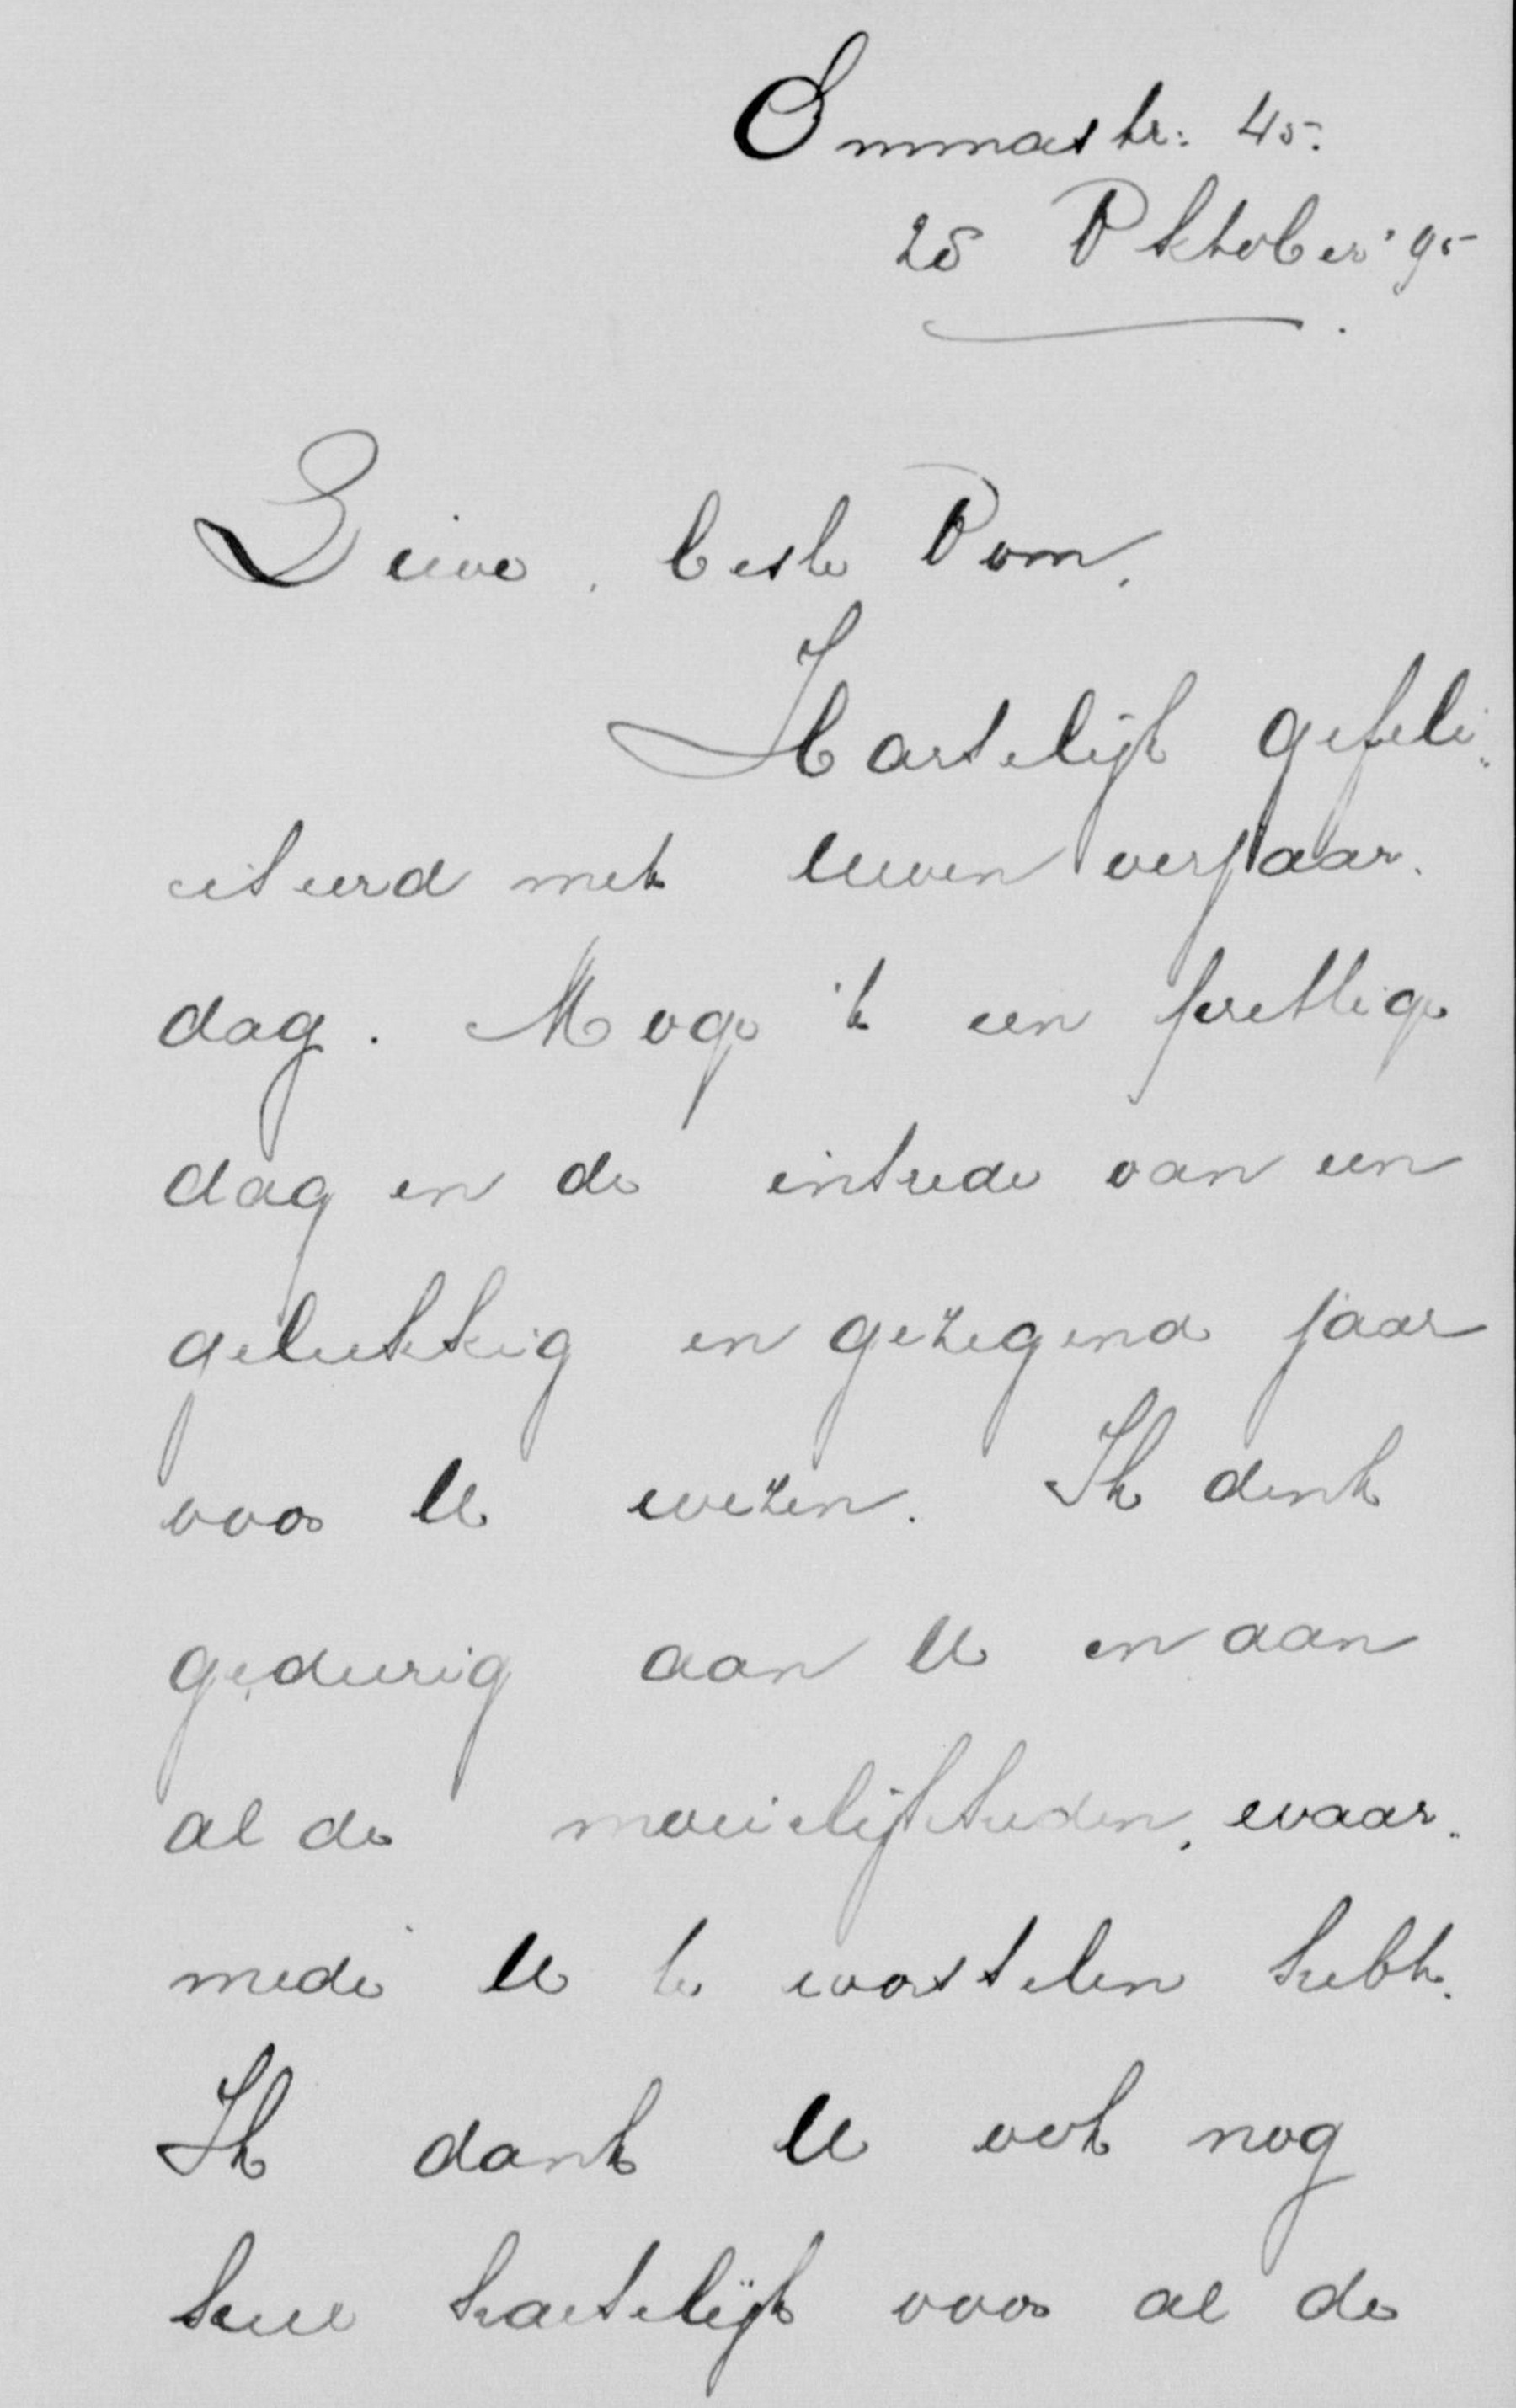 Emmastr: 45.
28 Oktober '95
Lieve, beste Oom,
Hartelijk gefeli„
citeerd met Uwen verjaar„
dag. Moge 't een prettige
dag en de intrede van een
gelukkig en gezegend jaar
voor U wezen. Ik denk
gedurig aan U en aan
al de moeielijkheden, waar„
mede U te worstelen hebt.
Ik dank U ook nog
heel hartelijk voor al de